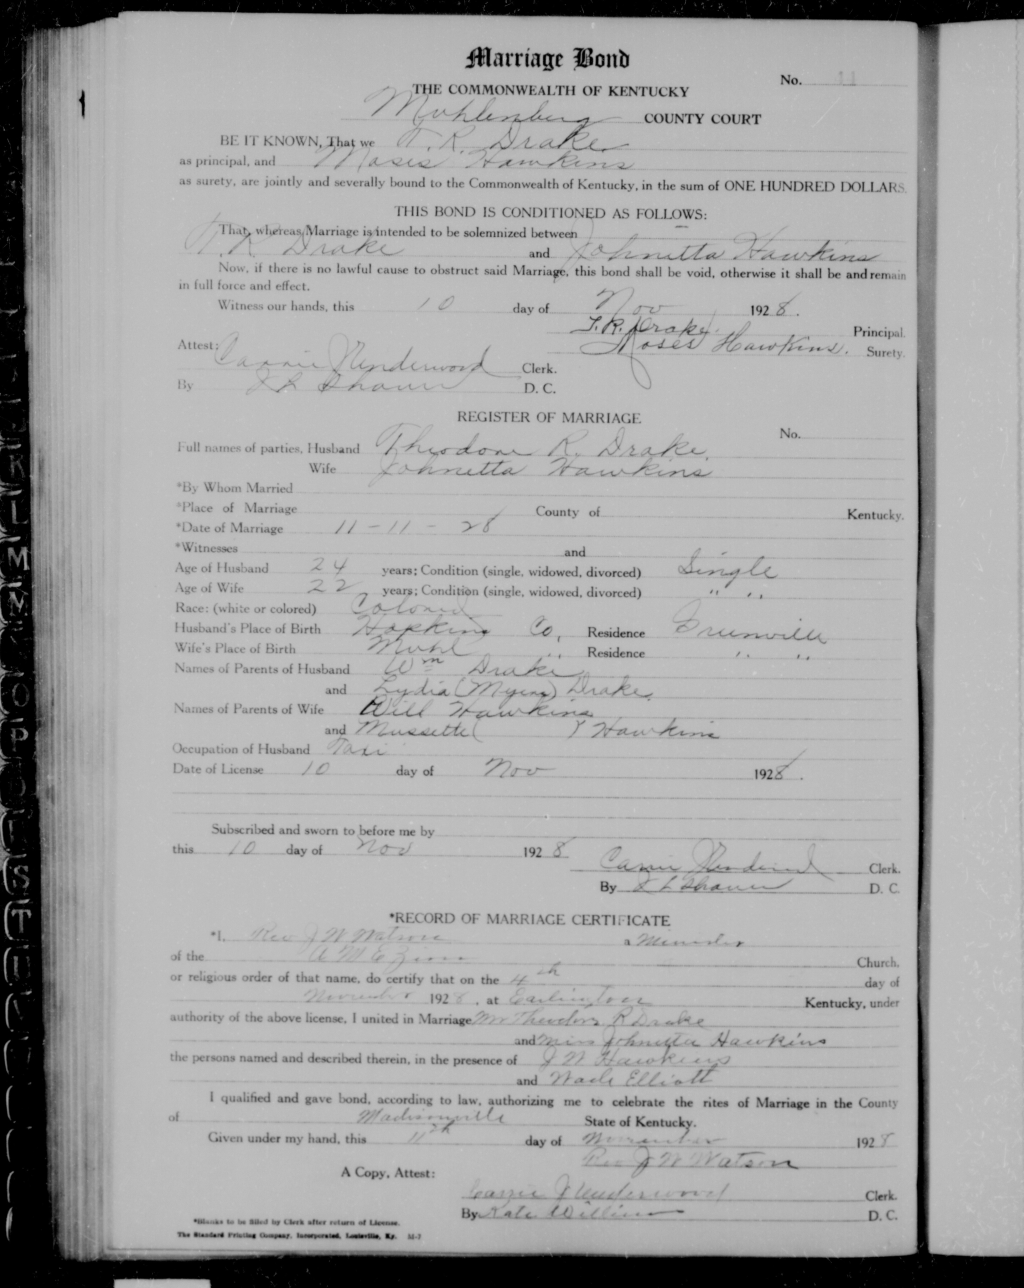 Marriage Bond
No. 11
THE COMMONWEALTH OF KENTUCKY
Muhlenberg COUNTY COURT
BE IT KNOWN, That we T. R. Drake
as principal, and Moses Hawkins
as surety, are jointly and severally bound to the Commonwealth of Kentucky, in the sum of ONE HUNDRED DOLLARS.
THIS BOND IS CONDITIONED AS FOLLOWS:
That, whereas Marriage is intended to be solemnized between
T. R. Drake and Johnetta Hawkins
Now, if there is no lawful cause to obstruct said Marriage, this bond shall be void, otherwise it shall be and remain
in full force and effect.
Witness our hands, this 10 day of Nov 1928.
T. R. Drake Principal.
Moses Hawkins. Surety.
Attest: Carrie Underwood Clerk.
By J L Shaver D. C.
REGISTER OF MARRIAGE
No.
Full names of parties, Husband Theodore R. Drake,
Wife Johnetta Hawkins
*By Whom Married
*Place of Marriage County of Kentucky.
*Date of Marriage 11-11-28
*Witnesses and
Age of Husband 24 years; Condition (single, widowed, divorced) Single
Age of Wife 22 years; Condition (single, widowed, divorced) " "
Race: (white or colored) Colored
Husband's Place of Birth Hopkins Co, Residence Greenville
Wife's Place of Birth Muhl " Residence " "
Names of Parents of Husband Wm Drake
and Lydia (Myers) Drake.
Names of Parents of Wife Will Hawkins
and Mussette ( ) Hawkins
Occupation of Husband Taxi
Date of License 10 day of Nov 1928.
Subscribed and sworn to before me by
this 10 day of Nov 1928
Carrie Underwood Clerk.
By J L Shaver D. C.
*RECORD OF MARRIAGE CERTIFICATE
*I, Rev J W Watson a Minister
of the A M E Zion Church.
or religious order of that name, do certify that on the 4th day of
November 1928, at Earlington Kentucky, under
authority of the above license, I united in Marriage Mr Theodore R Drake
and Miss Johnetta Hawkins
the persons named and described therein, in the presence of J W Hawkins
and Wade Elliott
I qualified and gave bond, according to law, authorizing me to celebrate the rites of Marriage in the County
of Madisonville State of Kentucky.
Given under my hand, this 11th day of November 1928
Rev J W Watson
A Copy, Attest:
Carrie Underwood Clerk.
By Kate Willis D. C.
*Blanks to be filled by Clerk after return of License.
The Standard Printing Company, Incorporated, Louisville, Ky.